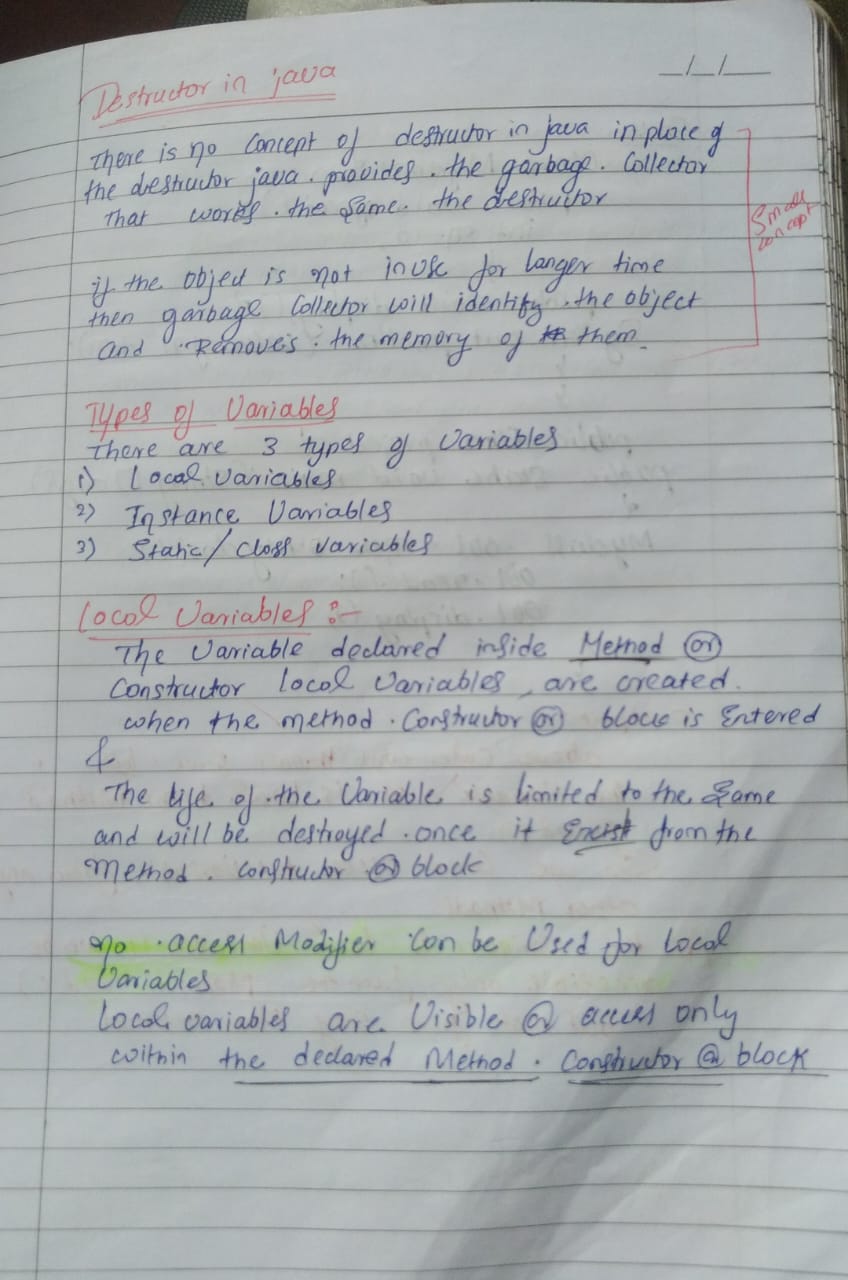 Destructor in java
_/_/_
There is no Concept of destructor in java in place of
the destructor java provides the garbage Collector
That works the same the destructor
Small concept
if the object is not in use for longer time
then garbage Collector will identify the object
and Removes the memory of them
Types of Variables
There are 3 types of Variables
1) Local Variables
2) Instance Variables
3) Static/Class Variables
Local Variables :-
The Variable declared inside Method or
Constructor local Variables, are created.
when the method . Constructor or block is Entered
&
The life of the Variable is limited to the same
and will be destroyed once it from the
Method . Constructor or block
no access Modifier can be Used for local
Variables
Local variables are Visible or access only
within the declared Method . Constructor or block